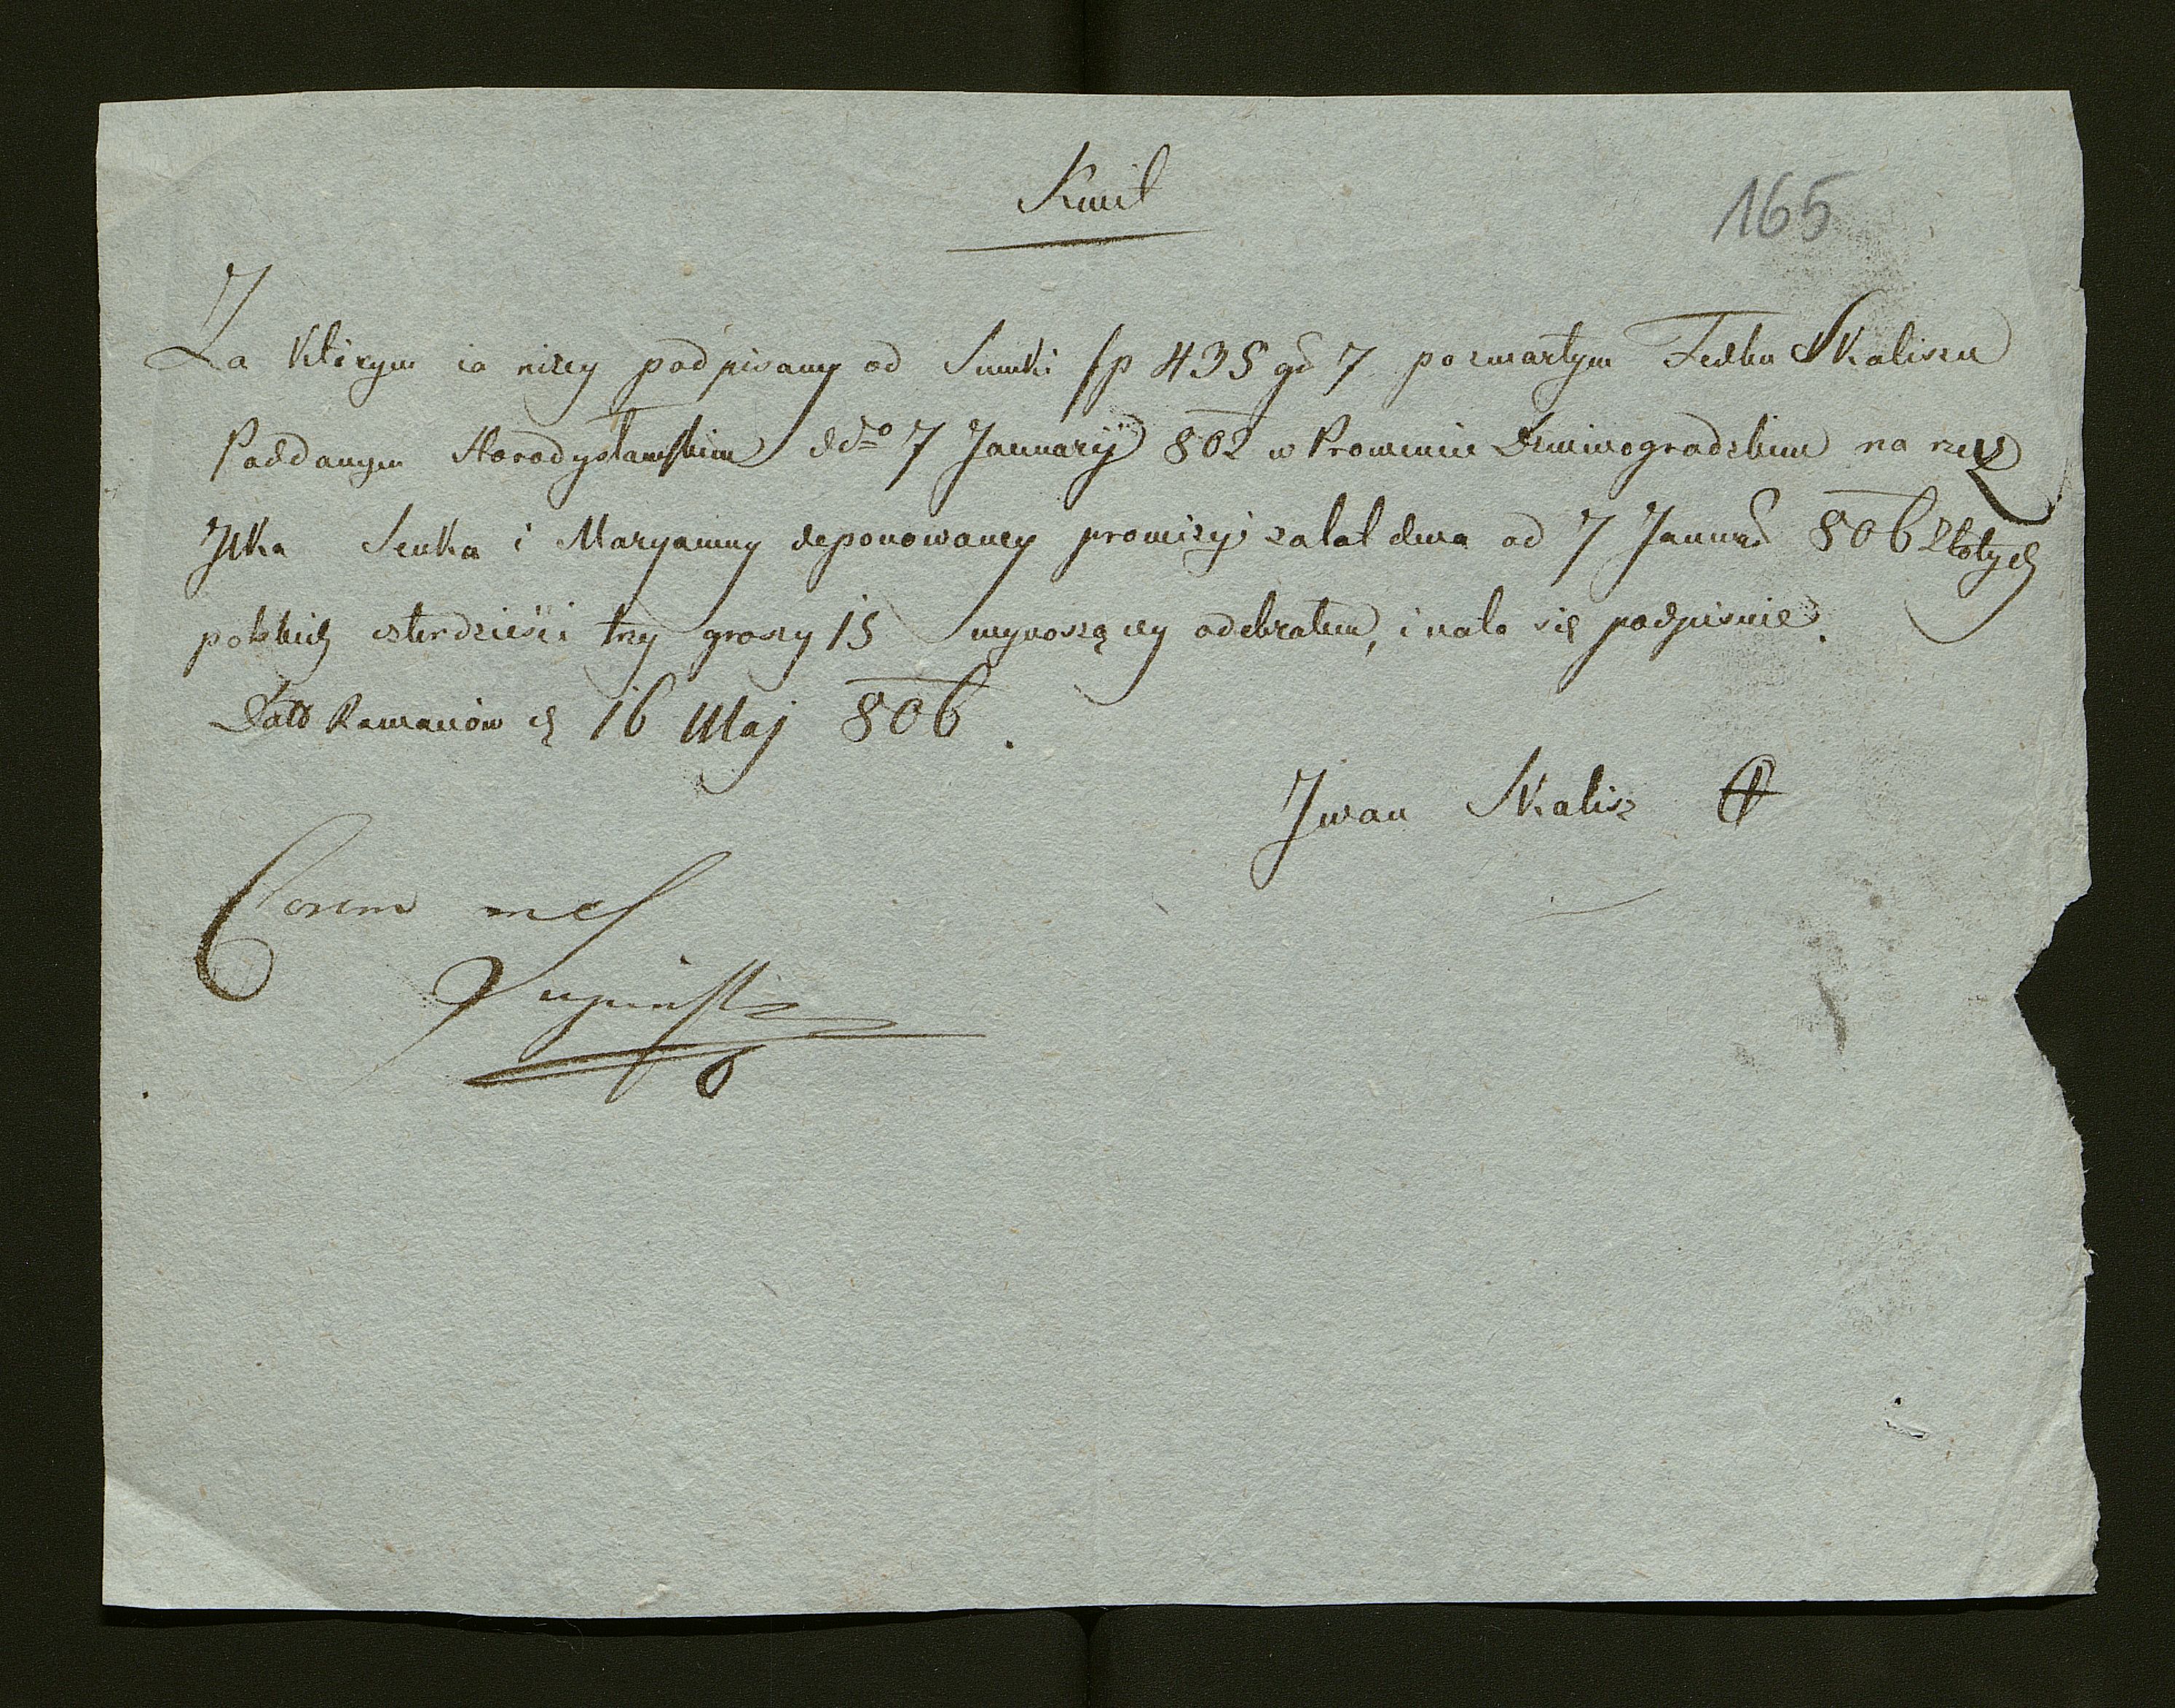 Kwit
165
Za którym ia niżey podpisany od Summki fp 435 gr 7 po zmarłym Fedku Skaliszu
Poddanym Horodysławskim ddto 7 January 802 w Prowencie Dzwinogradzkim na rzecz
Jlka Senka i Maryanny deponowaney prowizyi za lat dwa od 7 Januar 806 Złotych
polskich czterdzieści trzy groszy 15 wynoszącey odebrałem, i na to się podpisuie.
Datt Romanów d 16 Maj 806.
Jwan Skalisz
Coram me